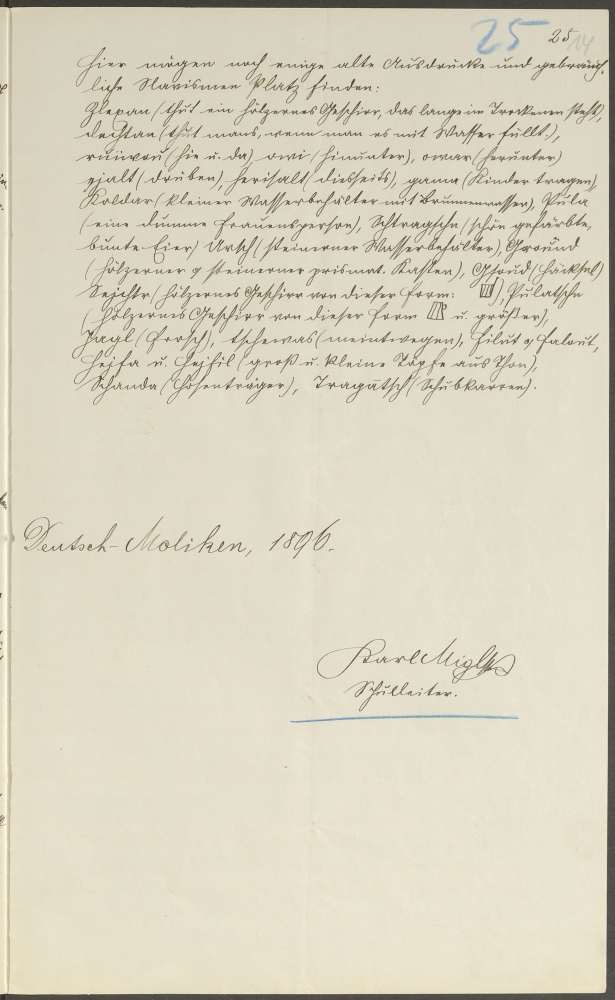 25
25 14
Hier mögen noch einige alte Ausdrücke und gebräuch-
liche Slavismen Platz finden:
Zlexan (thut ein hölzernes Geschirr, das lange im Trockenen steht),
dechtan (thut mans, wenn man es mit Wasser füllt),
(hie u. da), owi (hinunter), owar (herunter)
gjalt (drüben), herisalt (diesseits), gama (Kinder tragen),
Koldar (kleiner Wasserbehälter mit Brunnenwasser), Pula
(eine dumme Frauensperson), Schtragschn (schön gefärbte,
bunte Eier) Ursch (steinerner Wasserbehälter), Ground
(hölzerner o steinerner prismat. Kasten), Ghoud (Häcksel)
Sejchtr (hölzernes Geschirr von dieser Form: ), Pulatschn
(hölzernes Geschirr von dieser Form u. größer),
Jagl (Frosch), tschewas (meintwegen), Filut o Falout,
Hejfa u. Hejfil (groß u. kleine Töpfe aus Thon),
Schanda (Hosenträger), Tragatsch (Schubkarren).
Deutsch-Moliken, 1896.
Karl Migl
Schulleiter.